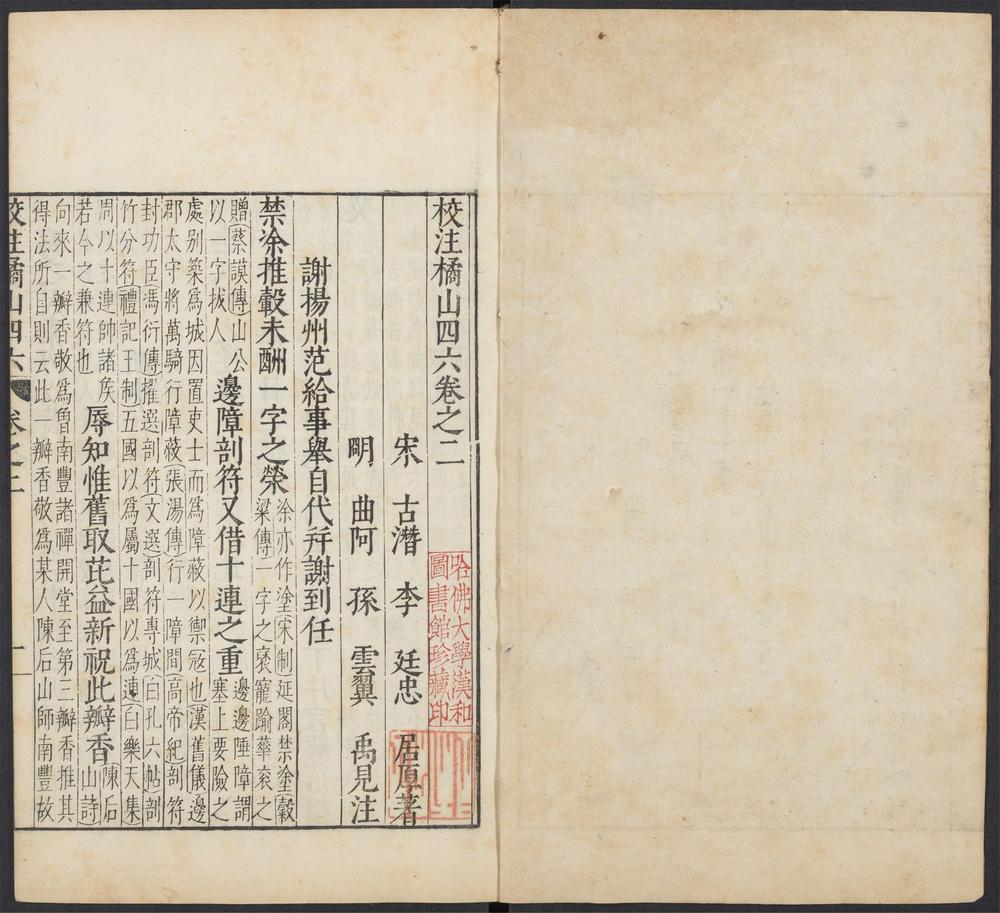 校注橘山四六卷之二
宋 古潛 李 廷忠 居厚著
明 曲阿 孫 雲翼 禹見注
謝揚州范給事舉自代幷謝到任
禁涂推轂未酬一字之榮
涂亦作塗宋制延閣禁塗穀
梁傳一字之褒寵踰華衮之
贈蔡謨傳山公
以一字拔人
邊障剖符又借十連之重
邊邊陲障謂
塞上要險之
處别築爲城因置吏士而爲障蔽以禦寇也漢舊儀邊
郡太守將萬騎行障蔽張湯傳行一障間高帝紀剖符
封功臣馮衍傳擢選剖符文選剖符專城白孔六帖剖
竹分符禮記王制五國以爲屬十國以爲連白樂天集
周以十連帥諸矦
若今之兼符也
辱知惟舊取芘益新祝此瓣香
陳后
山詩
向來一瓣香敬爲魯南豐諸禪開堂至第三瓣香推其
得法所自則云此一瓣香敬爲某人陳后山師南豐故
校注橘山四六
卷之二
一
哈佛大學漢和
圖書館珍藏印